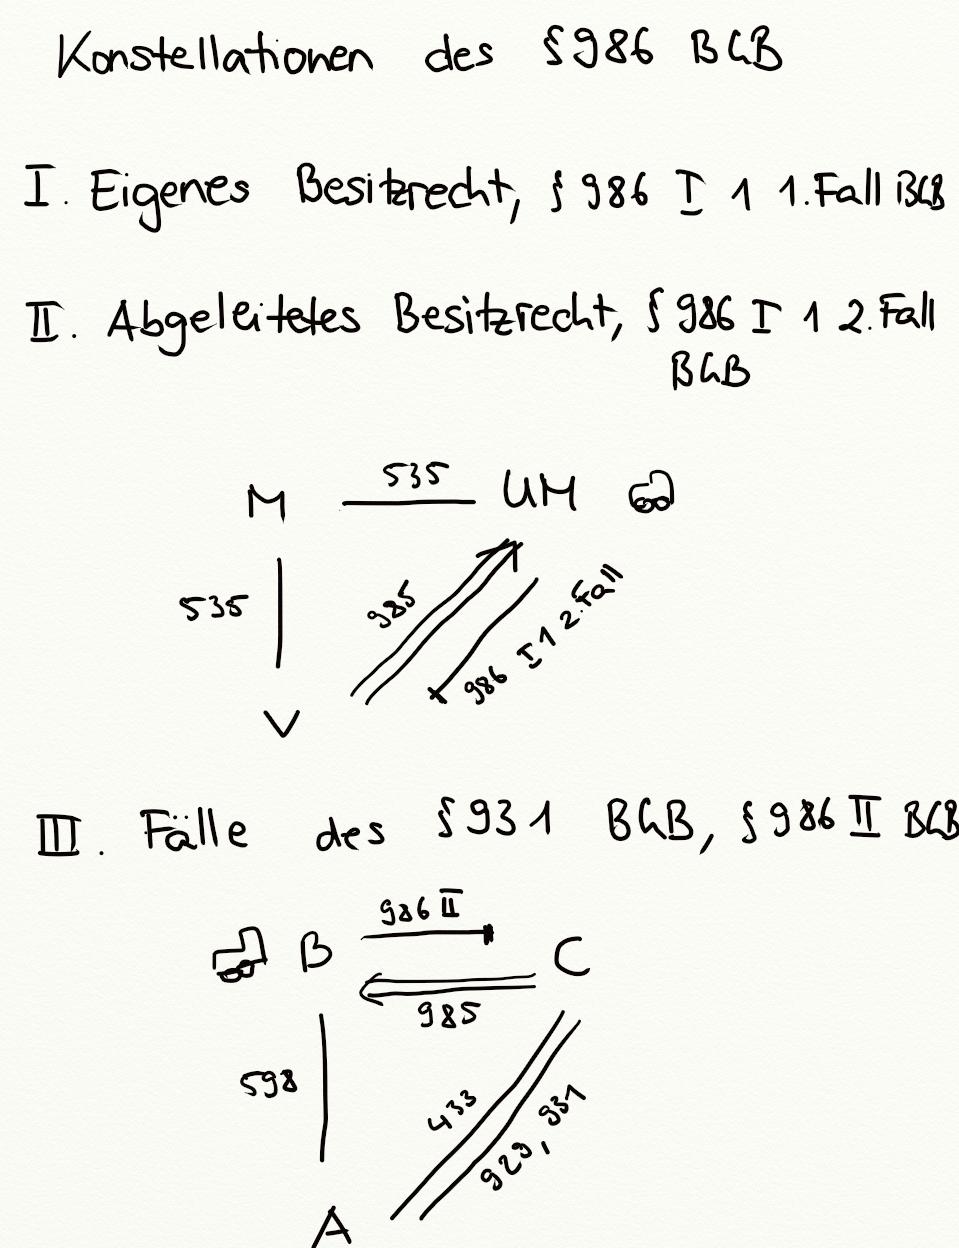 Konstellationen des §986 BGB
I. Eigenes Besitzrecht, §986 I 1 1.Fall BGB
II. Abgeleitetes Besitzrecht, §986 I 1 2.Fall
BGB
M 535 UM
535
985
986 I 1 2.Fall
V
III. Fälle des §931 BGB, §986 II BGB
986 II
B C
985
598
433
929, 931
A